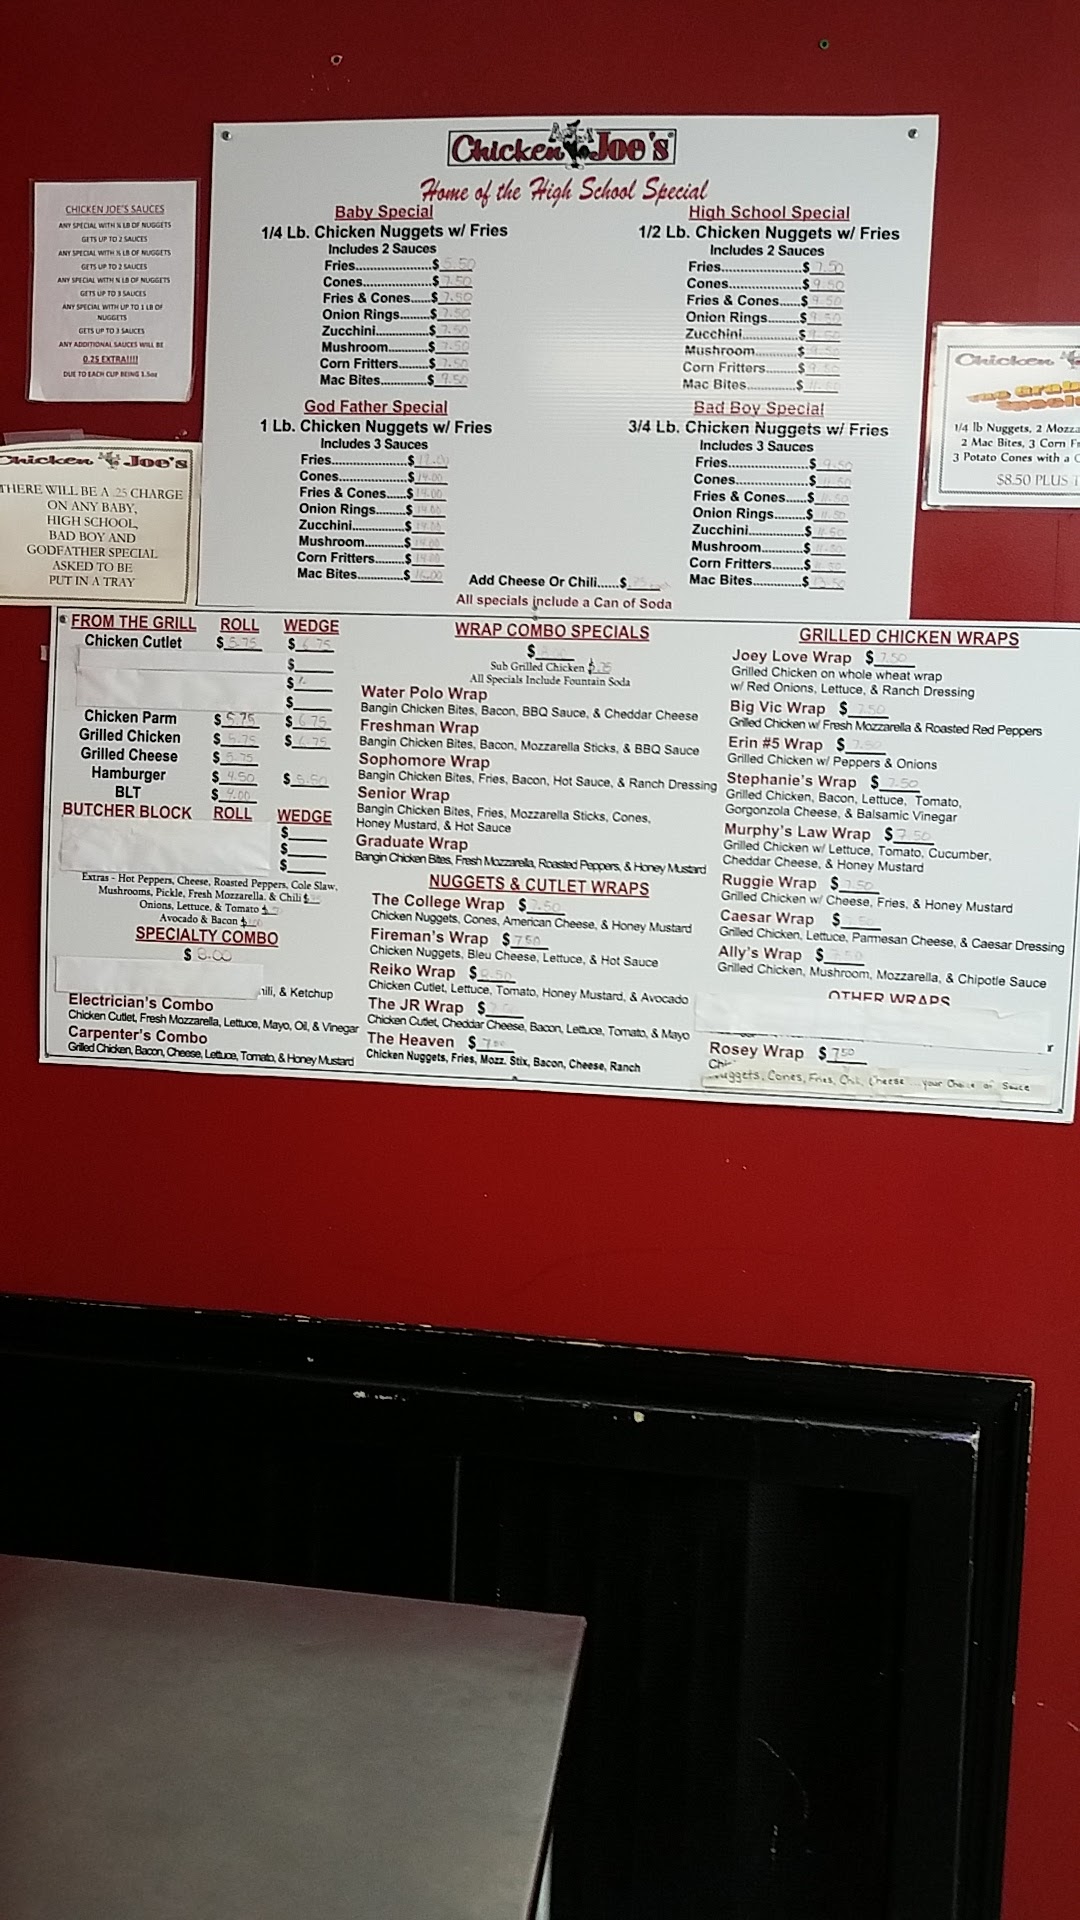 Chicken Joe's
Home of the High School Special
Baby Special
1/4 Lb. Chicken Nuggets w/ Fries
Includes 2 Sauces
Fries.....................$ 5.50
Cones....................$ 7.50
Fries & Cones......$ 7.50
Onion Rings........$ 7.50
Zucchini..............$ 7.50
Mushroom...........$ 7.50
Corn Fritters........$ 7.50
Mac Bites............$ 9.50
High School Special
1/2 Lb. Chicken Nuggets w/ Fries
Includes 2 Sauces
Fries.....................$ 7.50
Cones....................$ 9.50
Fries & Cones......$ 9.50
Onion Rings........$ 9.50
Zucchini..............$ 9.50
Mushroom...........$ 9.50
Corn Fritters........$ 9.50
Mac Bites............$
God Father Special
1 Lb. Chicken Nuggets w/ Fries
Includes 3 Sauces
Fries.....................$
Cones....................$ 14.00
Fries & Cones......$ 14.00
Onion Rings........$ 14.00
Zucchini..............$ 14.00
Mushroom...........$ 14.00
Corn Fritters........$ 14.00
Mac Bites............$ 16.00
Bad Boy Special
3/4 Lb. Chicken Nuggets w/ Fries
Includes 3 Sauces
Fries.....................$ 9.50
Cones....................$ 11.50
Fries & Cones......$ 11.50
Onion Rings........$ 11.50
Zucchini..............$ 11.50
Mushroom...........$ 11.50
Corn Fritters........$ 11.50
Mac Bites............$ 13.50
Add Cheese Or Chili......$
All specials include a Can of Soda
CHICKEN JOE'S SAUCES
ANY SPECIAL WITH ¼ LB OF NUGGETS
GETS UP TO 2 SAUCES
ANY SPECIAL WITH ½ LB OF NUGGETS
GETS UP TO 2 SAUCES
ANY SPECIAL WITH ¾ LB OF NUGGETS
GETS UP TO 3 SAUCES
ANY SPECIAL WITH UP TO 1 LB OF
NUGGETS
GETS UP TO 3 SAUCES
ANY ADDITIONAL SAUCES WILL BE
0.25 EXTRA!!!!
DUE TO EACH CUP BEING 1.5oz
Chicken Joe's
THERE WILL BE A .25 CHARGE
ON ANY BABY,
HIGH SCHOOL,
BAD BOY AND
GODFATHER SPECIAL
ASKED TO BE
PUT IN A TRAY
Chicken
1/4 lb Nuggets, 2 Mozza
2 Mac Bites, 3 Corn Fr
3 Potato Cones with a C
$8.50 PLUS T
FROM THE GRILL ROLL WEDGE
Chicken Cutlet $ 5.75 $ 6.75
$
$
$
Chicken Parm $ 5.75 $ 6.75
Grilled Chicken $ 5.75 $ 6.75
Grilled Cheese $ 5.75
Hamburger $ 4.50 $ 5.50
BLT $ 4.00
BUTCHER BLOCK ROLL WEDGE
$
$
$
Extras - Hot Peppers, Cheese, Roasted Peppers, Cole Slaw,
Mushrooms, Pickle, Fresh Mozzarella, & Chili $
Onions, Lettuce, & Tomato $
Avocado & Bacon $
SPECIALTY COMBO
$ 8.00
hili, & Ketchup
Electrician's Combo
Chicken Cutlet, Fresh Mozzarella, Lettuce, Mayo, Oil, & Vinegar
Carpenter's Combo
Grilled Chicken, Bacon, Cheese, Lettuce, Tomato, & Honey Mustard
WRAP COMBO SPECIALS
$
Sub Grilled Chicken $ .75
All Specials Include Fountain Soda
Water Polo Wrap
Bangin Chicken Bites, Bacon, BBQ Sauce, & Cheddar Cheese
Freshman Wrap
Bangin Chicken Bites, Bacon, Mozzarella Sticks, & BBQ Sauce
Sophomore Wrap
Bangin Chicken Bites, Fries, Bacon, Hot Sauce, & Ranch Dressing
Senior Wrap
Bangin Chicken Bites, Fries, Mozzarella Sticks, Cones,
Honey Mustard, & Hot Sauce
Graduate Wrap
Bangin Chicken Bites, Fresh Mozzarella, Roasted Peppers, & Honey Mustard
NUGGETS & CUTLET WRAPS
The College Wrap $ 7.50
Chicken Nuggets, Cones, American Cheese, & Honey Mustard
Fireman's Wrap $ 7.50
Chicken Nuggets, Bleu Cheese, Lettuce, & Hot Sauce
Reiko Wrap $ 8.50
Chicken Cutlet, Lettuce, Tomato, Honey Mustard, & Avocado
The JR Wrap $
Chicken Cutlet, Cheddar Cheese, Bacon, Lettuce, Tomato, & Mayo
The Heaven $ 7.50
Chicken Nuggets, Fries, Mozz. Stix, Bacon, Cheese, Ranch
GRILLED CHICKEN WRAPS
Joey Love Wrap $ 7.50
Grilled Chicken on whole wheat wrap
w/ Red Onions, Lettuce, & Ranch Dressing
Big Vic Wrap $ 7.50
Grilled Chicken w/ Fresh Mozzarella & Roasted Red Peppers
Erin #5 Wrap $ 7.50
Grilled Chicken w/ Peppers & Onions
Stephanie's Wrap $ 7.50
Grilled Chicken, Bacon, Lettuce, Tomato,
Gorgonzola Cheese, & Balsamic Vinegar
Murphy's Law Wrap $ 7.50
Grilled Chicken w/ Lettuce, Tomato, Cucumber,
Cheddar Cheese, & Honey Mustard
Ruggie Wrap $ 7.50
Grilled Chicken w/ Cheese, Fries, & Honey Mustard
Caesar Wrap $ 7.50
Grilled Chicken, Lettuce, Parmesan Cheese, & Caesar Dressing
Ally's Wrap $
Grilled Chicken, Mushroom, Mozzarella, & Chipotle Sauce
OTHER WRAPS
r
Rosey Wrap $ 7.50
Nuggets, Cones, Fries, Chili, Cheese your Choice of Sauce